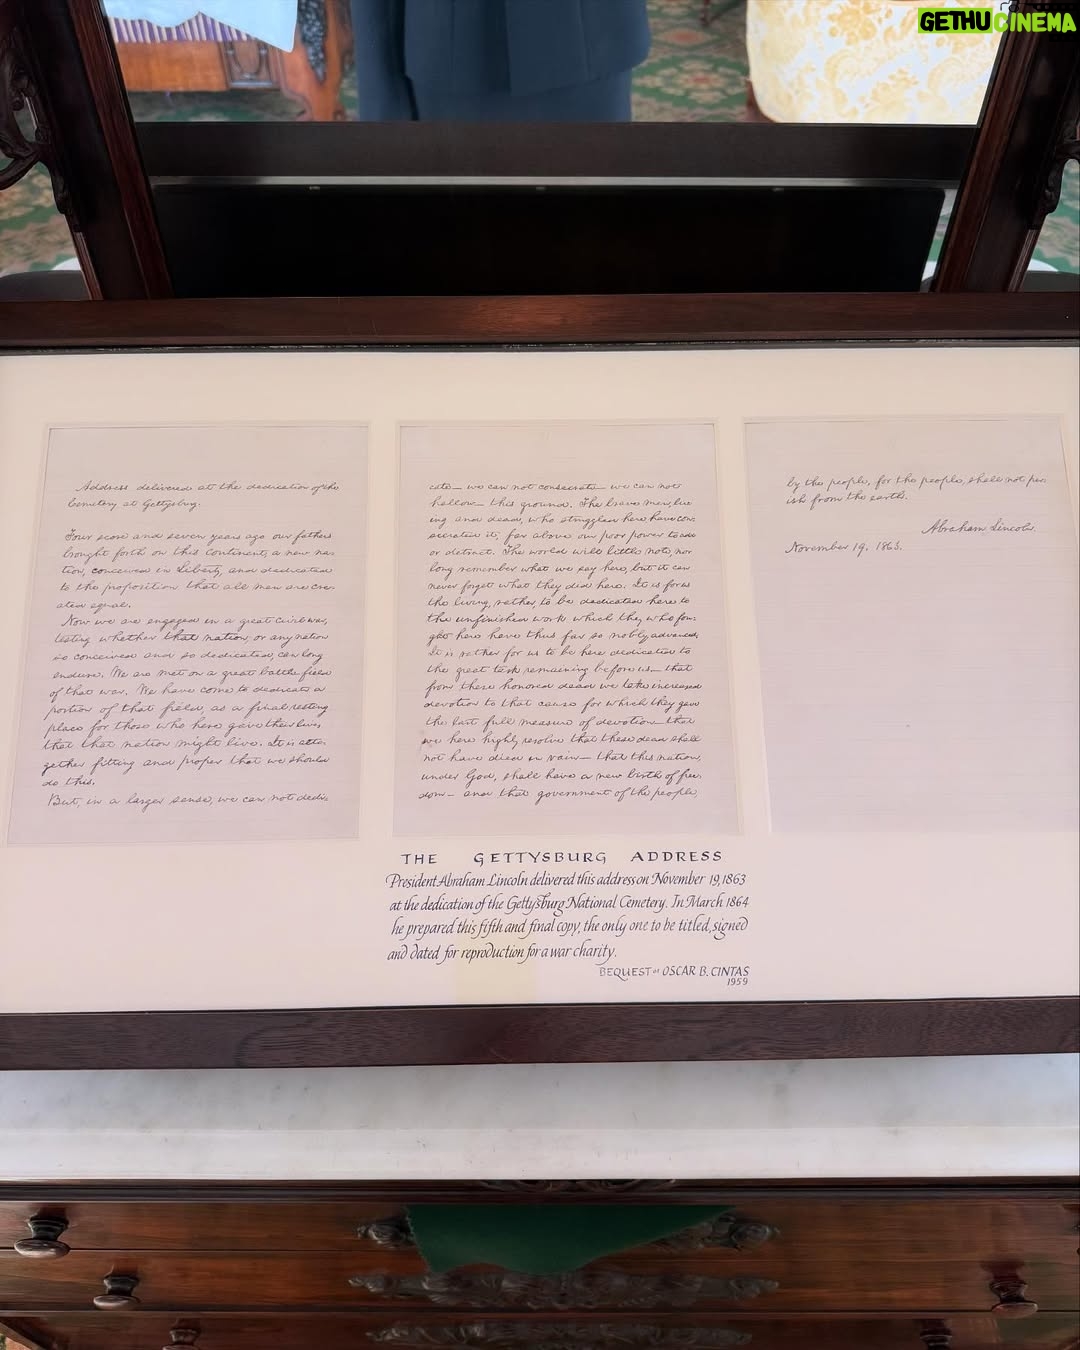 GETHUCINEMA
Address delivered at the dedication of the
Cemetery at Gettysburg.
Four score and seven years ago our fathers
brought forth on this continent, a new na-
tion, conceived in Liberty, and dedicated
to the proposition that all men are cre-
ated equal.
Now we are engaged in a great civil war,
testing whether that nation, or any nation
so conceived and so dedicated, can long
endure. We are met on a great battle-field
of that war. We have come to dedicate a
portion of that field, as a final resting
place for those who here gave their lives,
that that nation might live. It is alto-
gether fitting and proper that we should
do this.
But, in a larger sense, we can not dedi-
cate— we can not consecrate— we can not
hallow— this ground. The brave men, liv-
ing and dead, who struggled here, have con-
secrated it, far above our poor power to add
or detract. The world will little note, nor
long remember what we say here, but it can
never forget what they did here. It is for us
the living, rather, to be dedicated here to
the unfinished work which they who fou-
ght here have thus far so nobly advanced.
It is rather for us to be here dedicated to
the great task remaining before us— that
from these honored dead we take increased
devotion to that cause for which they gave
the last full measure of devotion— that
we here highly resolve that these dead shall
not have died in vain— that this nation,
under God, shall have a new birth of free-
dom— and that government of the people,
by the people, for the people, shall not per-
ish from the earth.
Abraham Lincoln.
November 19, 1863.
THE GETTYSBURG ADDRESS
President Abraham Lincoln delivered this address on November 19, 1863
at the dedication of the Gettysburg National Cemetery. In March 1864
he prepared this fifth and final copy, the only one to be titled, signed
and dated for reproduction for a war charity.
BEQUEST of OSCAR B. CINTAS
1959